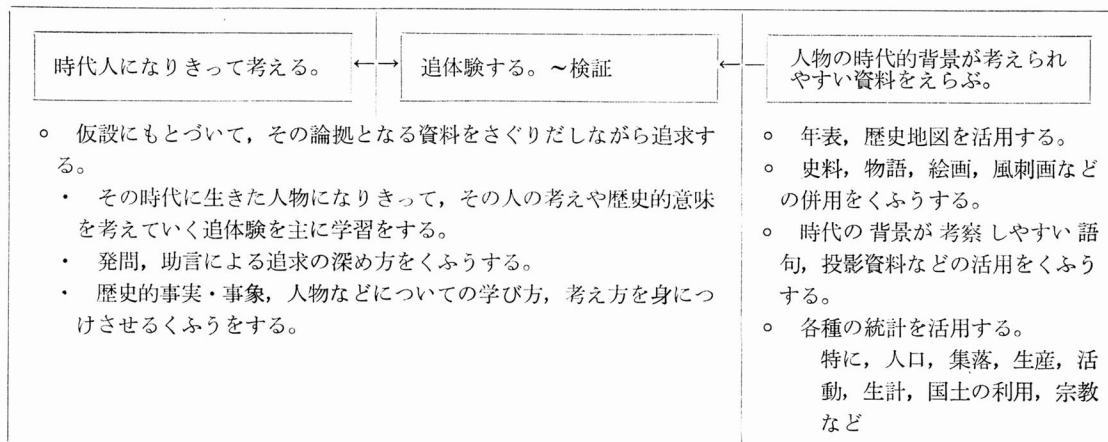 時代人になりきって考える。
追体験する。～検証
人物の時代的背景が考えられ
やすい資料をえらぶ。
○ 仮設にもとづいて，その論拠となる資料をさぐりだしながら追求す
る。
・ その時代に生きた人物になりきって，その人の考えや歴史的意味
を考えていく追体験を主に学習をする。
・ 発問，助言による追求の深め方をくふうする。
・ 歴史的事実・事象，人物などについての学び方，考え方を身につ
けさせるくふうをする。
○ 年表，歴史地図を活用する。
○ 史料，物語，絵画，風刺画など
の併用をくふうする。
○ 時代の背景が考察しやすい語
句，投影資料などの活用をくふう
する。
○ 各種の統計を活用する。
特に，人口，集落，生産，活
動，生計，国土の利用，宗教
など